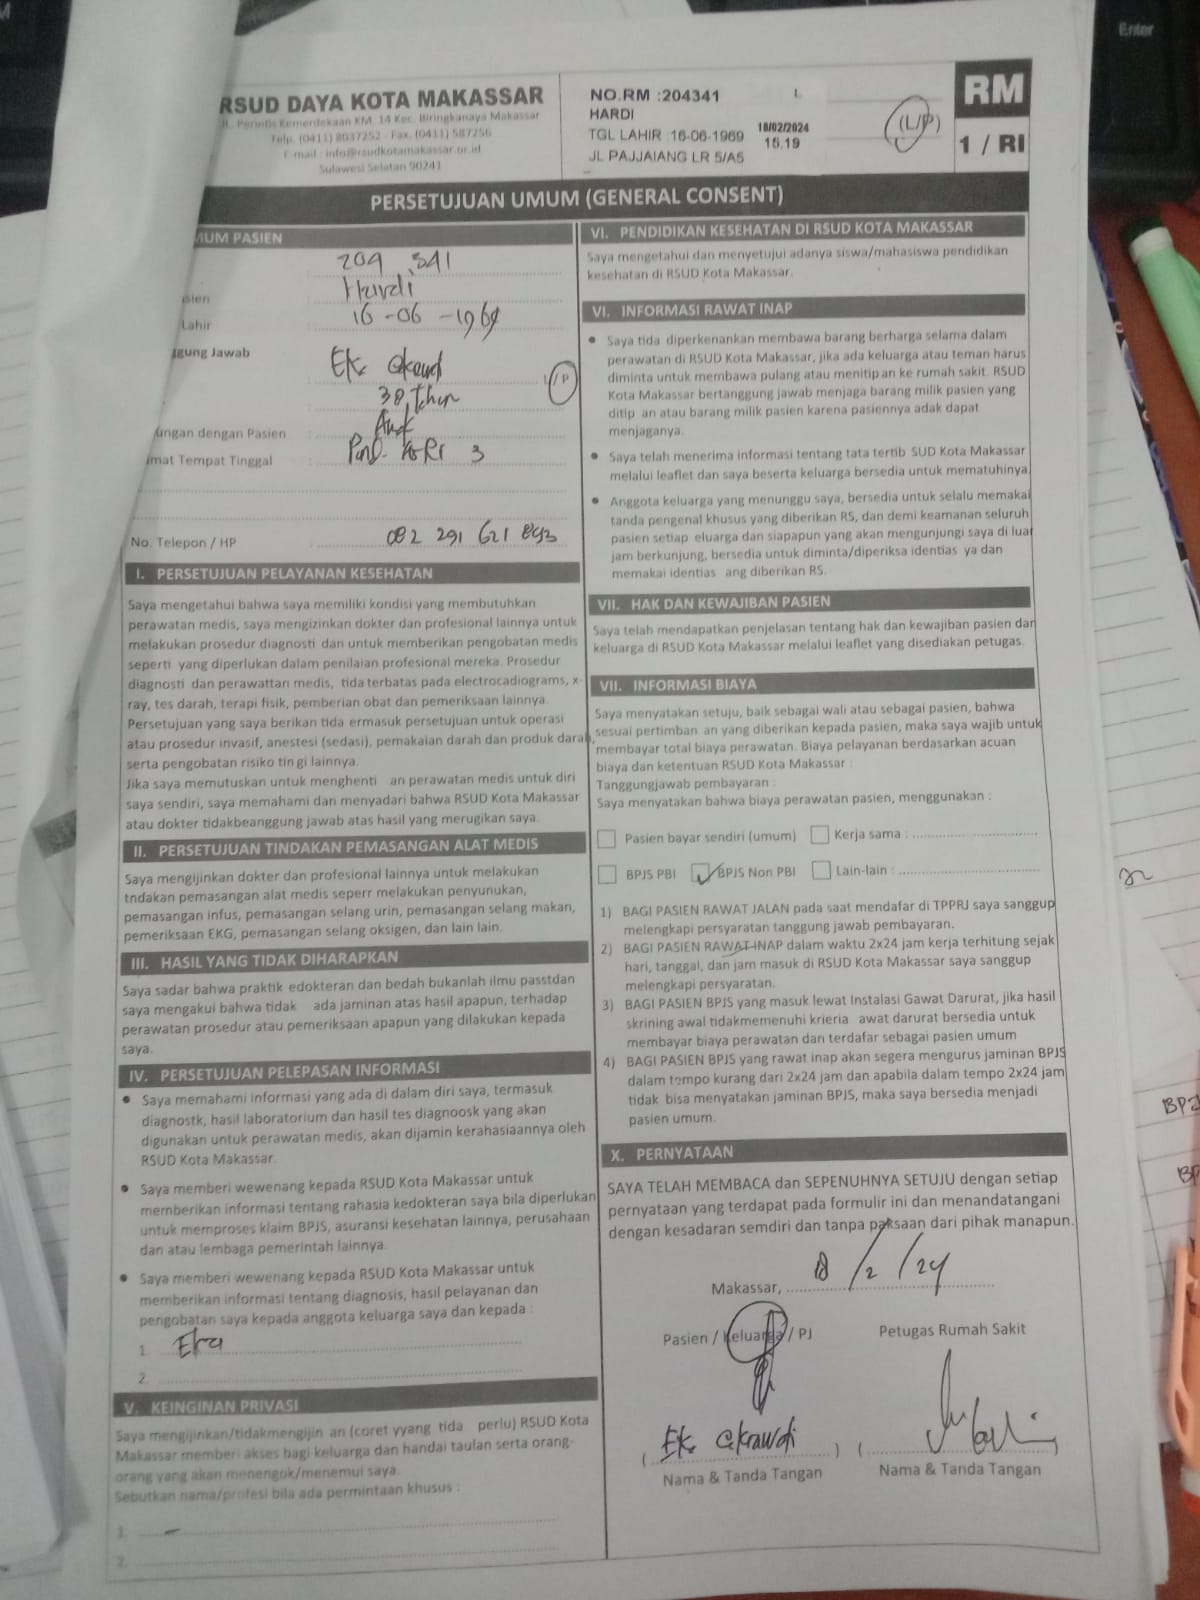 Enter
RSUD DAYA KOTA MAKASSAR
JL. Perintis Kemerdekaan KM. 14 Kec. Biringkanaya Makassar
Telp. (0411) 8037252 - Fax. (0411) 587256
E-mail : info@rsudkotamakassar.or.id
Sulawesi Selatan 90241
NO.RM :204341 L
HARDI
TGL LAHIR :16-06-1969 18/02/2024
15.19
JL PAJJAIANG LR 5/A5
(L/P)
RM
1 / RI
PERSETUJUAN UMUM (GENERAL CONSENT)
MUM PASIEN
204 341
sien Hardi
Lahir 16-06-1969
ggung Jawab
/ P
38 Tahun
ungan dengan Pasien :
mat Tempat Tinggal : 3
No. Telepon / HP : 082 291 621 893
I. PERSETUJUAN PELAYANAN KESEHATAN
Saya mengetahui bahwa saya memiliki kondisi yang membutuhkan
perawatan medis, saya mengizinkan dokter dan profesional lainnya untuk
melakukan prosedur diagnosti dan untuk memberikan pengobatan medis
seperti yang diperlukan dalam penilaian profesional mereka. Prosedur
diagnosti dan perawattan medis, tida terbatas pada electrocadiograms, x-
ray, tes darah, terapi fisik, pemberian obat dan pemeriksaan lainnya.
Persetujuan yang saya berikan tida ermasuk persetujuan untuk operasi
atau prosedur invasif, anestesi (sedasi), pemakaian darah dan produk darah,
serta pengobatan risiko tin gi lainnya.
Jika saya memutuskan untuk menghenti an perawatan medis untuk diri
saya sendiri, saya memahami dan menyadari bahwa RSUD Kota Makassar
atau dokter tidakbeanggung jawab atas hasil yang merugikan saya.
II. PERSETUJUAN TINDAKAN PEMASANGAN ALAT MEDIS
Saya mengijinkan dokter dan profesional lainnya untuk melakukan
tndakan pemasangan alat medis seperr melakukan penyunukan,
pemasangan infus, pemasangan selang urin, pemasangan selang makan,
pemeriksaan EKG, pemasangan selang oksigen, dan lain lain.
III. HASIL YANG TIDAK DIHARAPKAN
Saya sadar bahwa praktik edokteran dan bedah bukanlah ilmu passtdan
saya mengakui bahwa tidak ada jaminan atas hasil apapun, terhadap
perawatan prosedur atau pemeriksaan apapun yang dilakukan kepada
saya.
IV. PERSETUJUAN PELEPASAN INFORMASI
• Saya memahami informasi yang ada di dalam diri saya, termasuk
diagnostk, hasil laboratorium dan hasil tes diagnoosk yang akan
digunakan untuk perawatan medis, akan dijamin kerahasiaannya oleh
RSUD Kota Makassar.
• Saya memberi wewenang kepada RSUD Kota Makassar untuk
memberikan informasi tentang rahasia kedokteran saya bila diperlukan
untuk memproses klaim BPJS, asuransi kesehatan lainnya, perusahaan
dan atau lembaga pemerintah lainnya.
• Saya memberi wewenang kepada RSUD Kota Makassar untuk
memberikan informasi tentang diagnosis, hasil pelayanan dan
pengobatan saya kepada anggota keluarga saya dan kepada :
1. Eka
2.
V. KEINGINAN PRIVASI
Saya mengijinkan/tidakmengijin an (coret yyang tida perlu) RSUD Kota
Makassar memberi akses bagi keluarga dan handai taulan serta orang-
orang yang akan menengok/menemui saya.
Sebutkan nama/profesi bila ada permintaan khusus :
1. -
2.
VI. PENDIDIKAN KESEHATAN DI RSUD KOTA MAKASSAR
Saya mengetahui dan menyetujui adanya siswa/mahasiswa pendidikan
kesehatan di RSUD Kota Makassar.
VI. INFORMASI RAWAT INAP
• Saya tida diperkenankan membawa barang berharga selama dalam
perawatan di RSUD Kota Makassar, jika ada keluarga atau teman harus
diminta untuk membawa pulang atau menitip an ke rumah sakit. RSUD
Kota Makassar bertanggung jawab menjaga barang milik pasien yang
ditip an atau barang milik pasien karena pasiennya adak dapat
menjaganya.
• Saya telah menerima informasi tentang tata tertib SUD Kota Makassar
melalui leaflet dan saya beserta keluarga bersedia untuk mematuhinya.
• Anggota keluarga yang menunggu saya, bersedia untuk selalu memakai
tanda pengenal khusus yang diberikan RS, dan demi keamanan seluruh
pasien setiap eluarga dan siapapun yang akan mengunjungi saya di luar
jam berkunjung, bersedia untuk diminta/diperiksa identias ya dan
memakai identias ang diberikan RS.
VII. HAK DAN KEWAJIBAN PASIEN
Saya telah mendapatkan penjelasan tentang hak dan kewajiban pasien dan
keluarga di RSUD Kota Makassar melalui leaflet yang disediakan petugas.
VII. INFORMASI BIAYA
Saya menyatakan setuju, baik sebagai wali atau sebagai pasien, bahwa
sesuai pertimban an yang diberikan kepada pasien, maka saya wajib untuk
membayar total biaya perawatan. Biaya pelayanan berdasarkan acuan
biaya dan ketentuan RSUD Kota Makassar :
Tanggungjawab pembayaran :
Saya menyatakan bahwa biaya perawatan pasien, menggunakan :
Pasien bayar sendiri (umum) Kerja sama :
BPJS PBI ✓ BPJS Non PBI Lain-lain :
1) BAGI PASIEN RAWAT JALAN pada saat mendafar di TPPRJ saya sanggup
melengkapi persyaratan tanggung jawab pembayaran.
2) BAGI PASIEN RAWAT INAP dalam waktu 2x24 jam kerja terhitung sejak
hari, tanggal, dan jam masuk di RSUD Kota Makassar saya sanggup
melengkapi persyaratan.
3) BAGI PASIEN BPJS yang masuk lewat Instalasi Gawat Darurat, jika hasil
skrining awal tidakmemenuhi krieria awat darurat bersedia untuk
membayar biaya perawatan dan terdafar sebagai pasien umum
4) BAGI PASIEN BPJS yang rawat inap akan segera mengurus jaminan BPJS
dalam tempo kurang dari 2x24 jam dan apabila dalam tempo 2x24 jam
tidak bisa menyatakan jaminan BPJS, maka saya bersedia menjadi
pasien umum.
X. PERNYATAAN
SAYA TELAH MEMBACA dan SEPENUHNYA SETUJU dengan setiap
pernyataan yang terdapat pada formulir ini dan menandatangani
dengan kesadaran semdiri dan tanpa paksaan dari pihak manapun.
Makassar, 18/2/24
Pasien / Keluarga / PJ Petugas Rumah Sakit
( ) ( )
Nama & Tanda Tangan Nama & Tanda Tangan